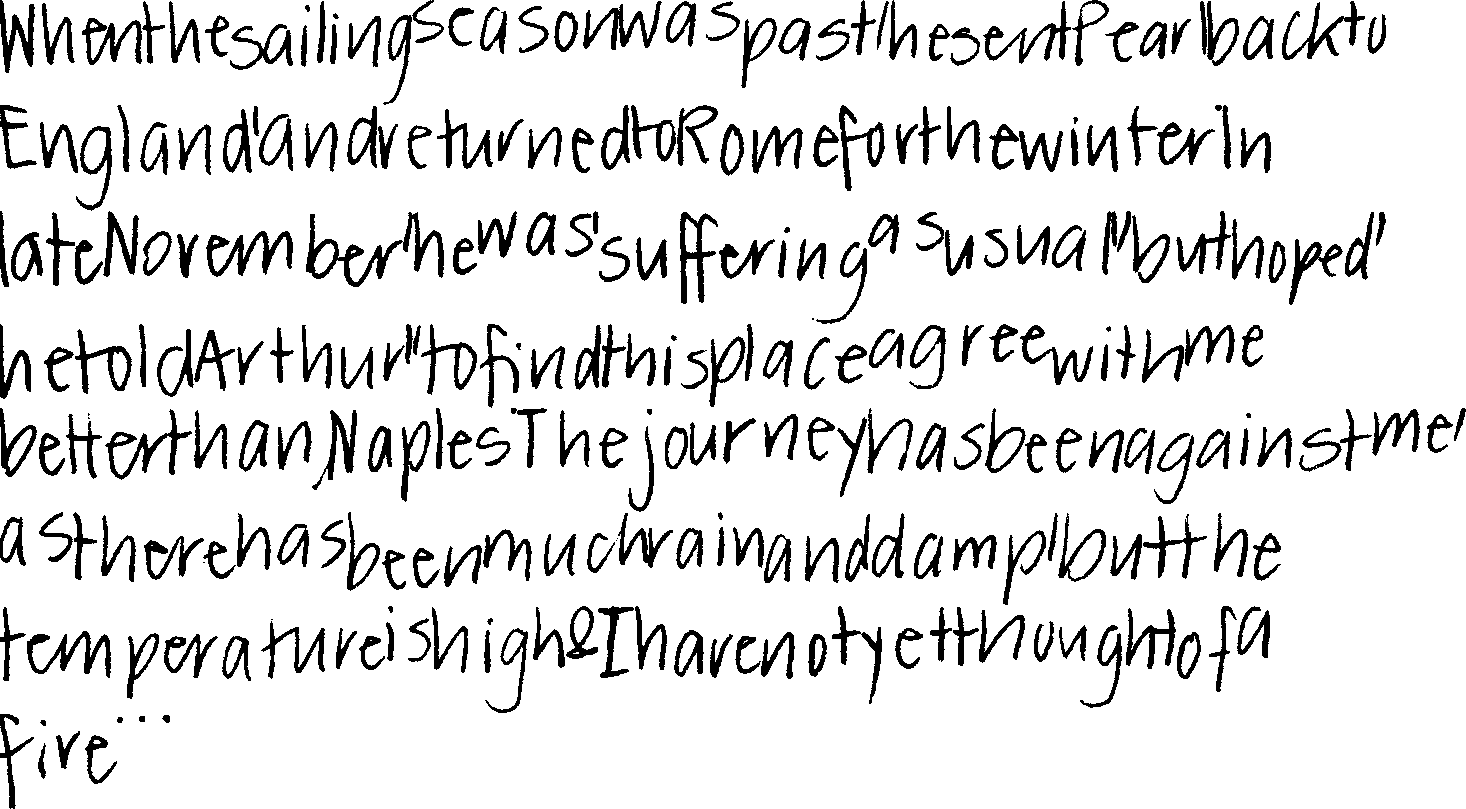 When the sailing season was past, he sent Pearl back to
England, and returned to Rome for the winter In
late November, he was, suffering as usual, but hoped,
he told Arthur, 'to find this place agree with me
better than, Naples The journey has been against me,
as there has been much rain and damp, but the
temperature is high & I have not yet thought of a
fire ...